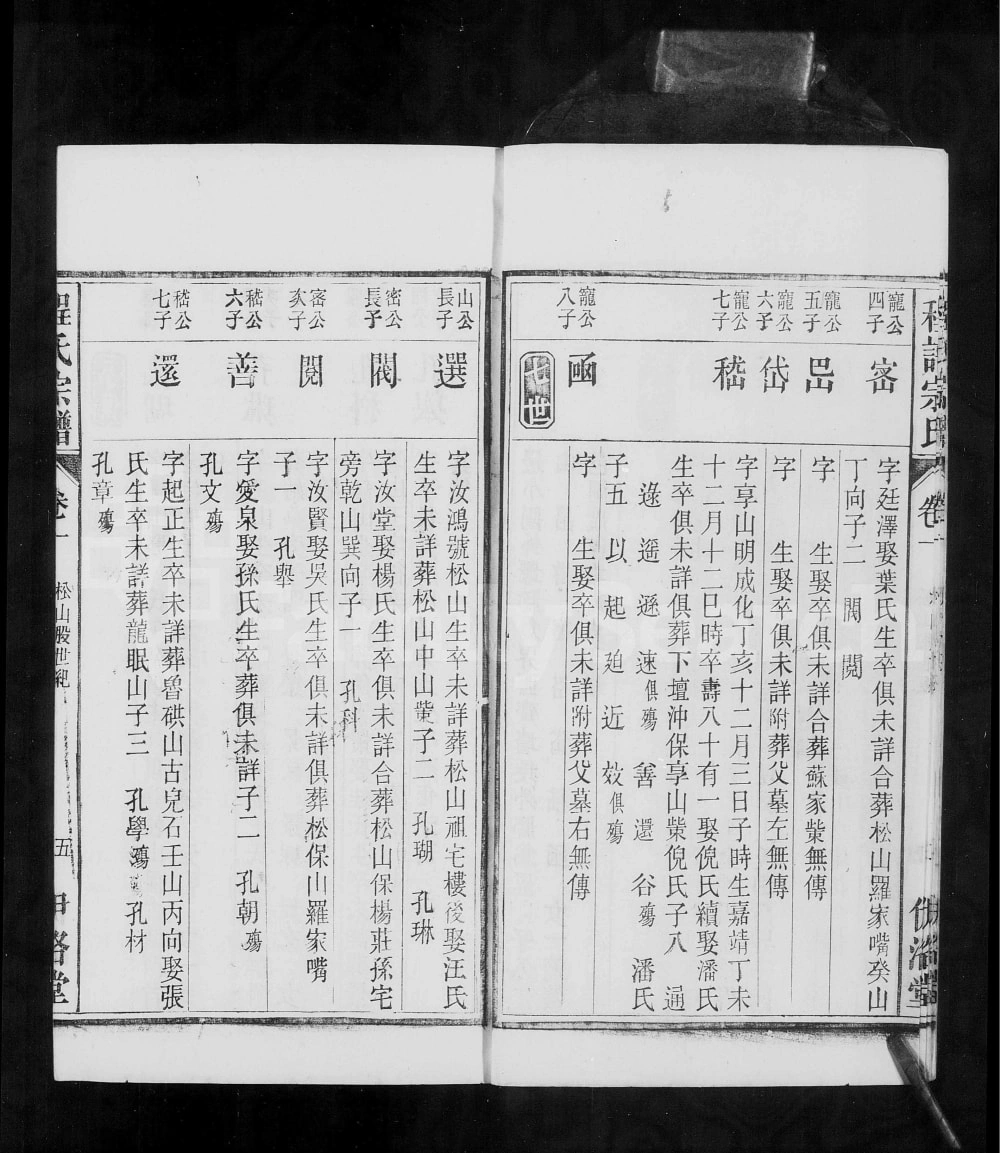 寵公
四子
峇
字廷澤娶葉氏生卒俱未詳合葬松山羅家嘴癸山
丁向子二 閣 閱
寵公
五子
岊
字 生娶卒俱未詳合葬蘇家棠無傳
寵公
六子
岱
字 生娶卒俱未詳附葬父墓左無傳
寵公
七子
嵇
字享山明成化丁亥十二月三日子時生嘉靖丁未
十二月十二巳時卒壽八十有一娶倪氏續娶潘氏
生卒俱未詳俱葬下壇沖保享山棠倪氏子八 遹
逯 遥 遜 速俱殤 善 還 谷殤 潘氏
子五 以 起 廹 近 效俱殤
寵公
八子
凾
字 生娶卒俱未詳附葬父墓右無傳
七世
山公
長子
選
字汝鴻號松山生卒未詳葬松山祖宅樓後娶汪氏
生卒未詳葬松山中山棠子二 孔瑚 孔琳
密公
長子
閣
字汝堂娶楊氏生卒俱未詳合葬松山保楊莊孫宅
旁乾山巽向子一 孔科
密公
次子
閱
字汝賢娶吳氏生卒俱未詳俱葬松保山羅家嘴
子一 孔舉
嵇公
六子
善
字愛泉娶孫氏生卒葬俱未詳子二 孔朝殤
孔文殤
嵇公
七子
還
字起正生卒未詳葬魯硔山古兒石壬山丙向娶張
氏生卒未詳葬龍眠山子三 孔學殤 孔材
孔章殤
程氏宗譜
卷一
松山股世紀
五
伊洛堂